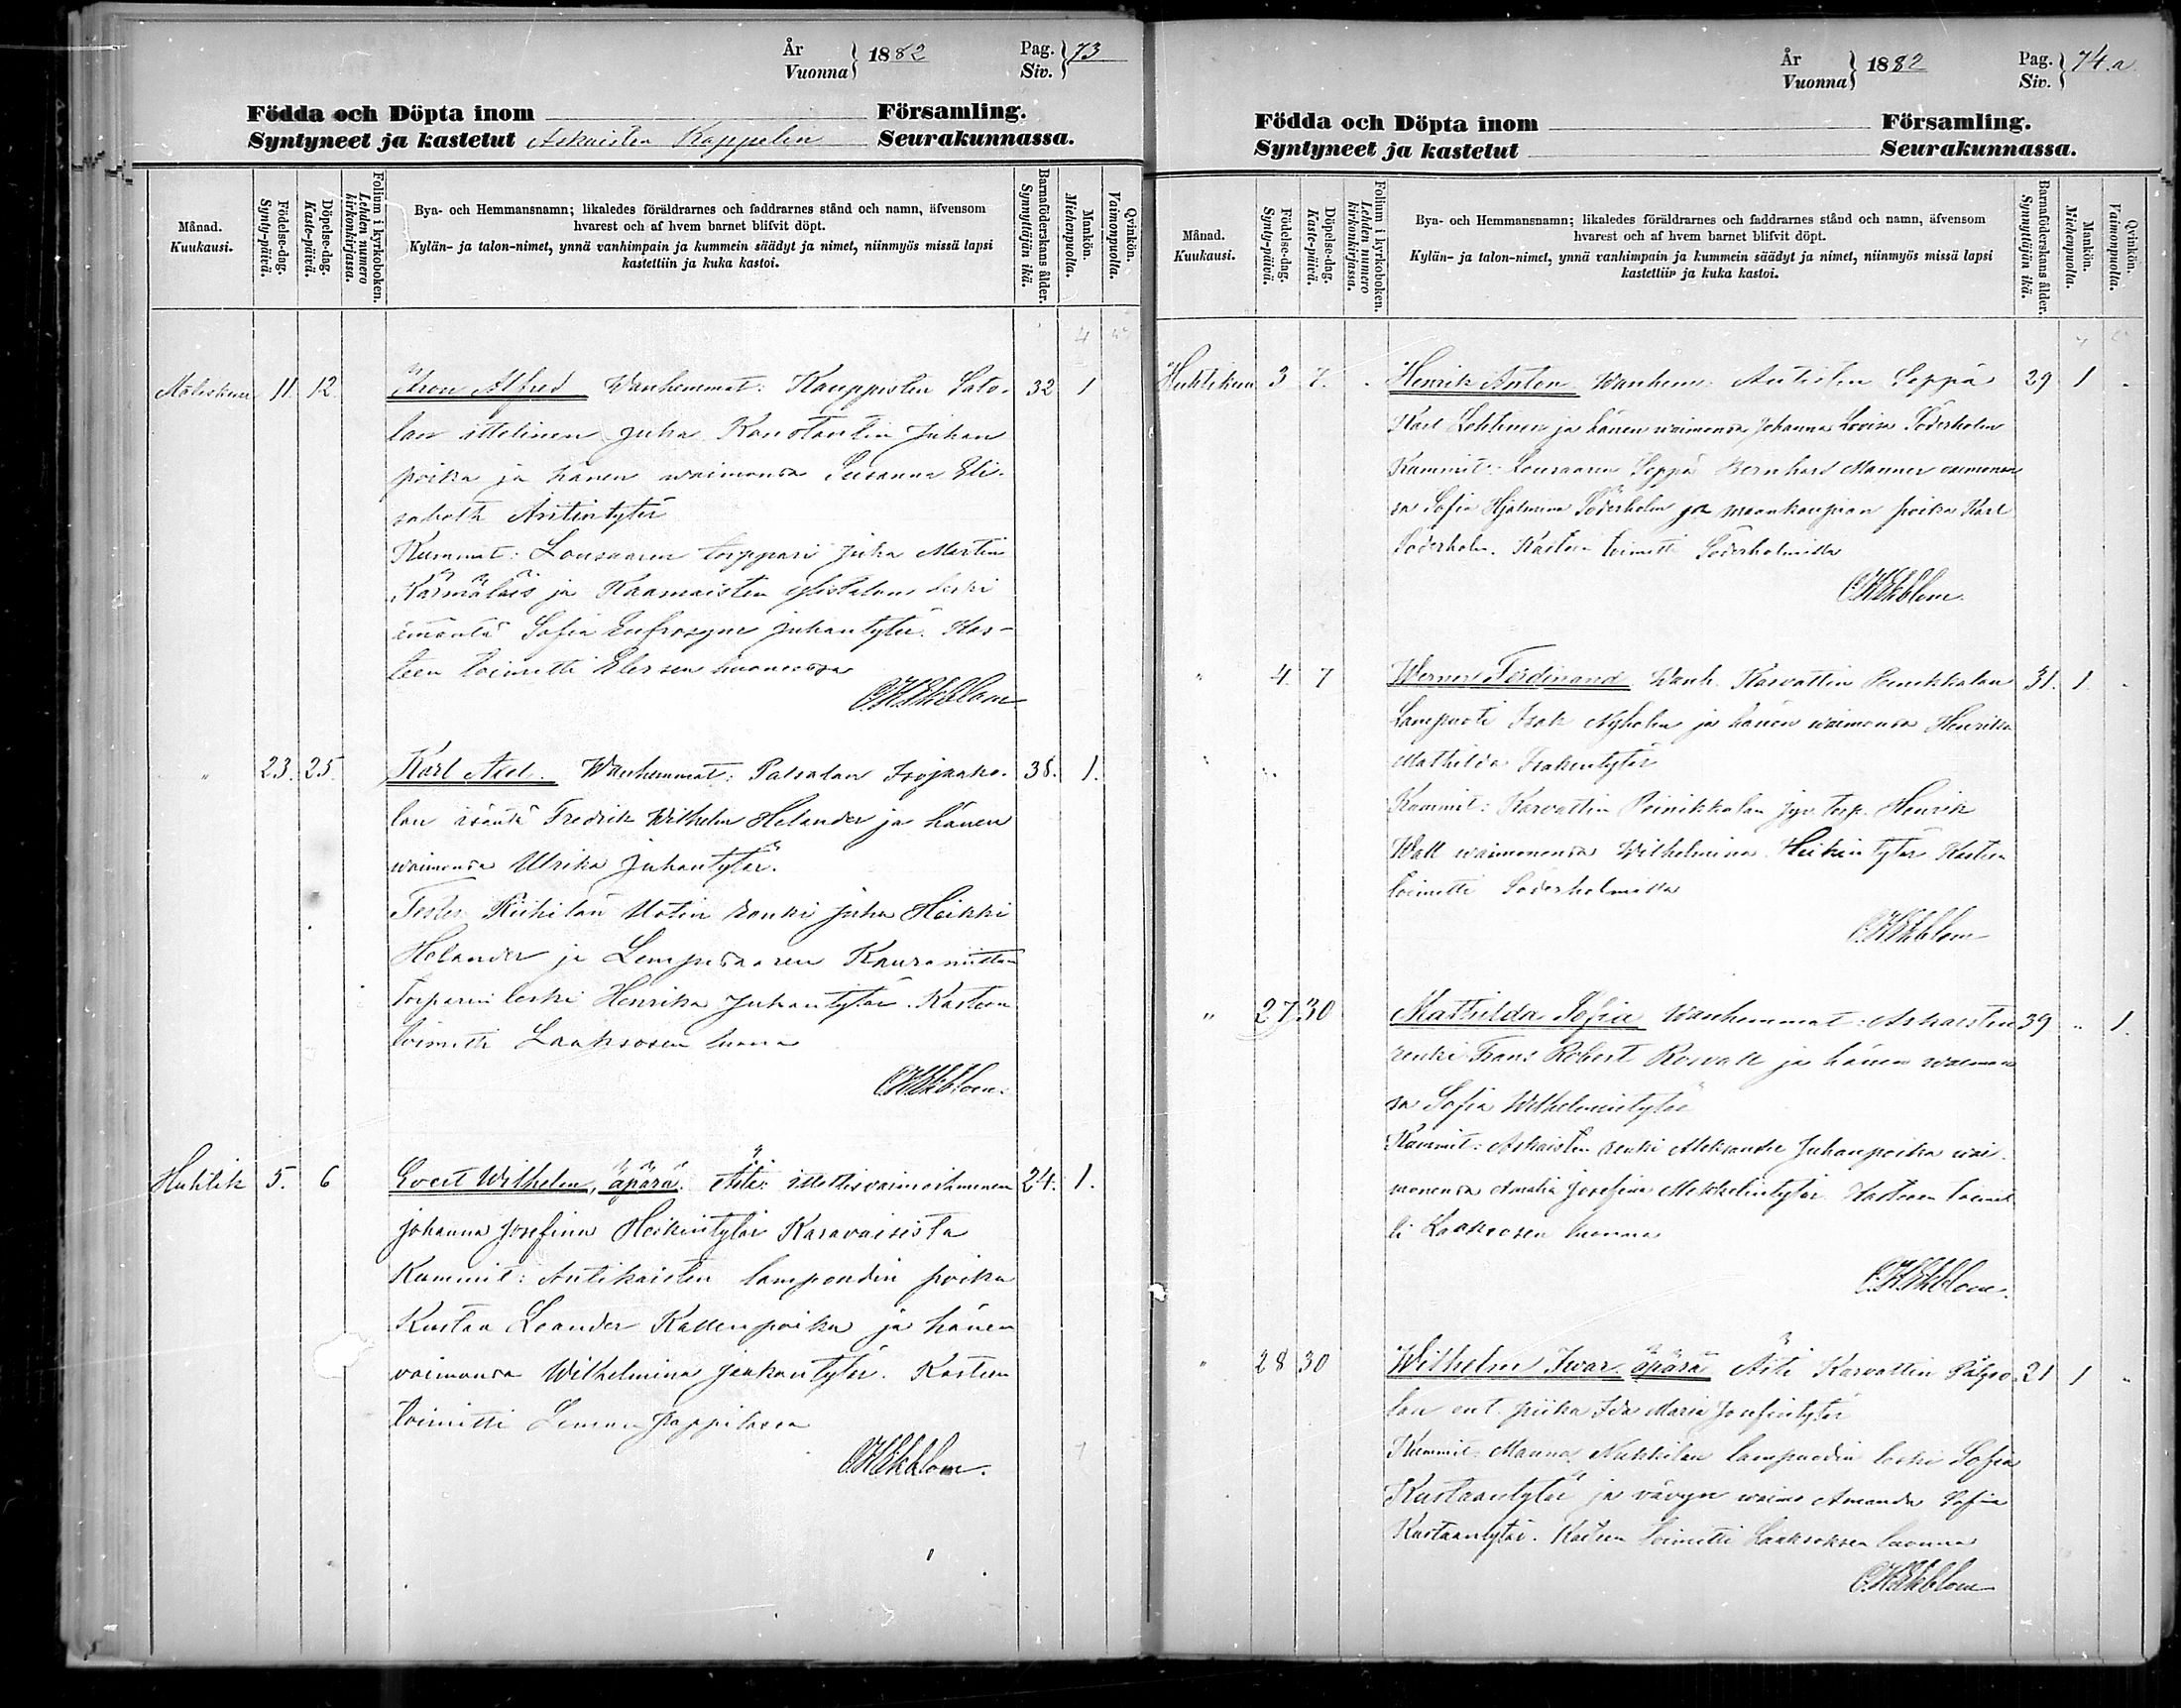 År
Vuonna
1882
Pag.
Siv.
73
Födda och Döpta inom Församling.
Syntyneet ja kastetut Askaisten Kappelin Seurakunnassa.
Månad.
Kuukausi.
Födelse-dag.
Synty-päivä.
Döpelse-dag.
Kaste-päivä.
Folium i kyrkoboken.
Lehden numero
kirkonkirjassa.
Bya- och Hemmansnamn; likaledes föräldrarnes och faddrarnes stånd och namn, äfvensom
hvarest och af hvem barnet blifvit döpt.
Kylän- ja talon-nimet, ynnä vanhimpain ja kummein säädyt ja nimet, niinmyös missä lapsi
kastettiin ja kuka kastoi.
Barnaföderskans ålder.
Synnyttäjän ikä.
Mankön.
Miehenpuolia.
Qvinkön.
Vaimonpuolia.
Maliskuu 11. 12. Aron Alfred Wanhemmat: Kauppisten Lato- 32 1
lan ittelinen Juha Konstantin Juhan
poika ja hänen waimonsa Susanna Eli-
sabeth Antintytär
Kummit: Lousaaren torppari Juha Martin
ja Kaamaisten leski
emäntä Sofia Eufrosyne Juhantytär. Kas-
teen toimitti
C.H.Ekblom
" 23. 25. Karl Axel. Wanhemmat: Palsalan Isojaako- 38. 1.
lan isäntä Fredrik Wilhelm Helander ja hänen
waimonsa Ulrika Juhantytär.
Kiikilän Uotin renki Juha Heikki
Helander ja Lempisaaren
torparin leski Henrika Juhantytär. Kasteen
toimitti Laaksosen luona
C.H.Ekblom.
Huhtik 5. 6 Evert Wilhelm, äpärä. Äiti: ittellisvaimoihminen 24. 1.
Johanna Josefina Heikintytär Karavaisista
Kummit: Antikaisten lampuodin poika
Kustaa Leander Kallenpoika ja hänen
vaimonsa Wilhelmina Jaakontytär. Kasteen
toimitti Lemun pappilassa
C.H.Ekblom.
År
Vuonna
1882
Pag.
Siv.
74.a
Födda och Döpta inom Församling.
Syntyneet ja kastetut Seurakunnassa.
Månad.
Kuukausi.
Födelse-dag.
Synty-päivä.
Döpelse-dag.
Kaste-päivä.
Folium i kyrkoboken.
Lehden numero
kirkonkirjassa.
Bya- och Hemmansnamn; likaledes föräldrarnes och faddrarnes stånd och namn, äfvensom
hvarest och af hvem barnet blifvit döpt.
Kylän- ja talon-nimet, ynnä vanhimpain ja kummein säädyt ja nimet, niinmyös missä lapsi
kastettiin ja kuka kastoi.
Barnaföderskans ålder.
Synnyttäjän ikä.
Mankön.
Miehenpuolia.
Qvinkön.
Vaimonpuolia.
Huhtikuu 3 7. Henrik Anton Wanhem: Autisten Seppä 29 1 "
Karl Lehtinen ja hänen waimonsa Johanna Lovisa Söderholm
Kummit: Lousaaren Seppä Bernhard Manner vaimonen
sa Sofia Hjalmina Söderholm ja maankaupian poika Karl
Söderholm. Kasteen toimitti Söderholmilla
C.H.Ekblom.
" 4. 7 Werner Ferdinand Wanh. Karvattin Poinikkalan 31. 1. "
Lampuoti Isak Nyholm ja hänen waimonsa Henrika
Mathilda Isakintytär
Kummit: Karvattin Poinikkalan jyv. torp. Henrik
Wall waimonensa Wilhelmina Heikintytär Kasteen
toimitti Söderholmilla
C.H.Ekblom
" 27 30 Mathilda Sofia Wanhemmat: Askaisten 39 " 1.
renki Frans Robert Rosvall ja hänen waimon
sa Sofia Wilhelmintytär
Kummit: Askaisten renki Aleksander Juhanpoika wai-
monensa Amalia Josefina Mikkelintytär Kasteen toimit
ti Laaksosen luonna
C.H.Ekblom.
" 28 30 Wilhelm Iwar. äpärä Äiti Karvattin 21 1 "
lan ent. piika Ida Maria Josefintytär
Kummit: Nukkilan lampuodin leski Sofia
Kustaantytär ja vävyn waimo Amanda Sofia
Kustaantytär. Kasteen toimitti Laaksoksen luonna
C.H.Ekblom